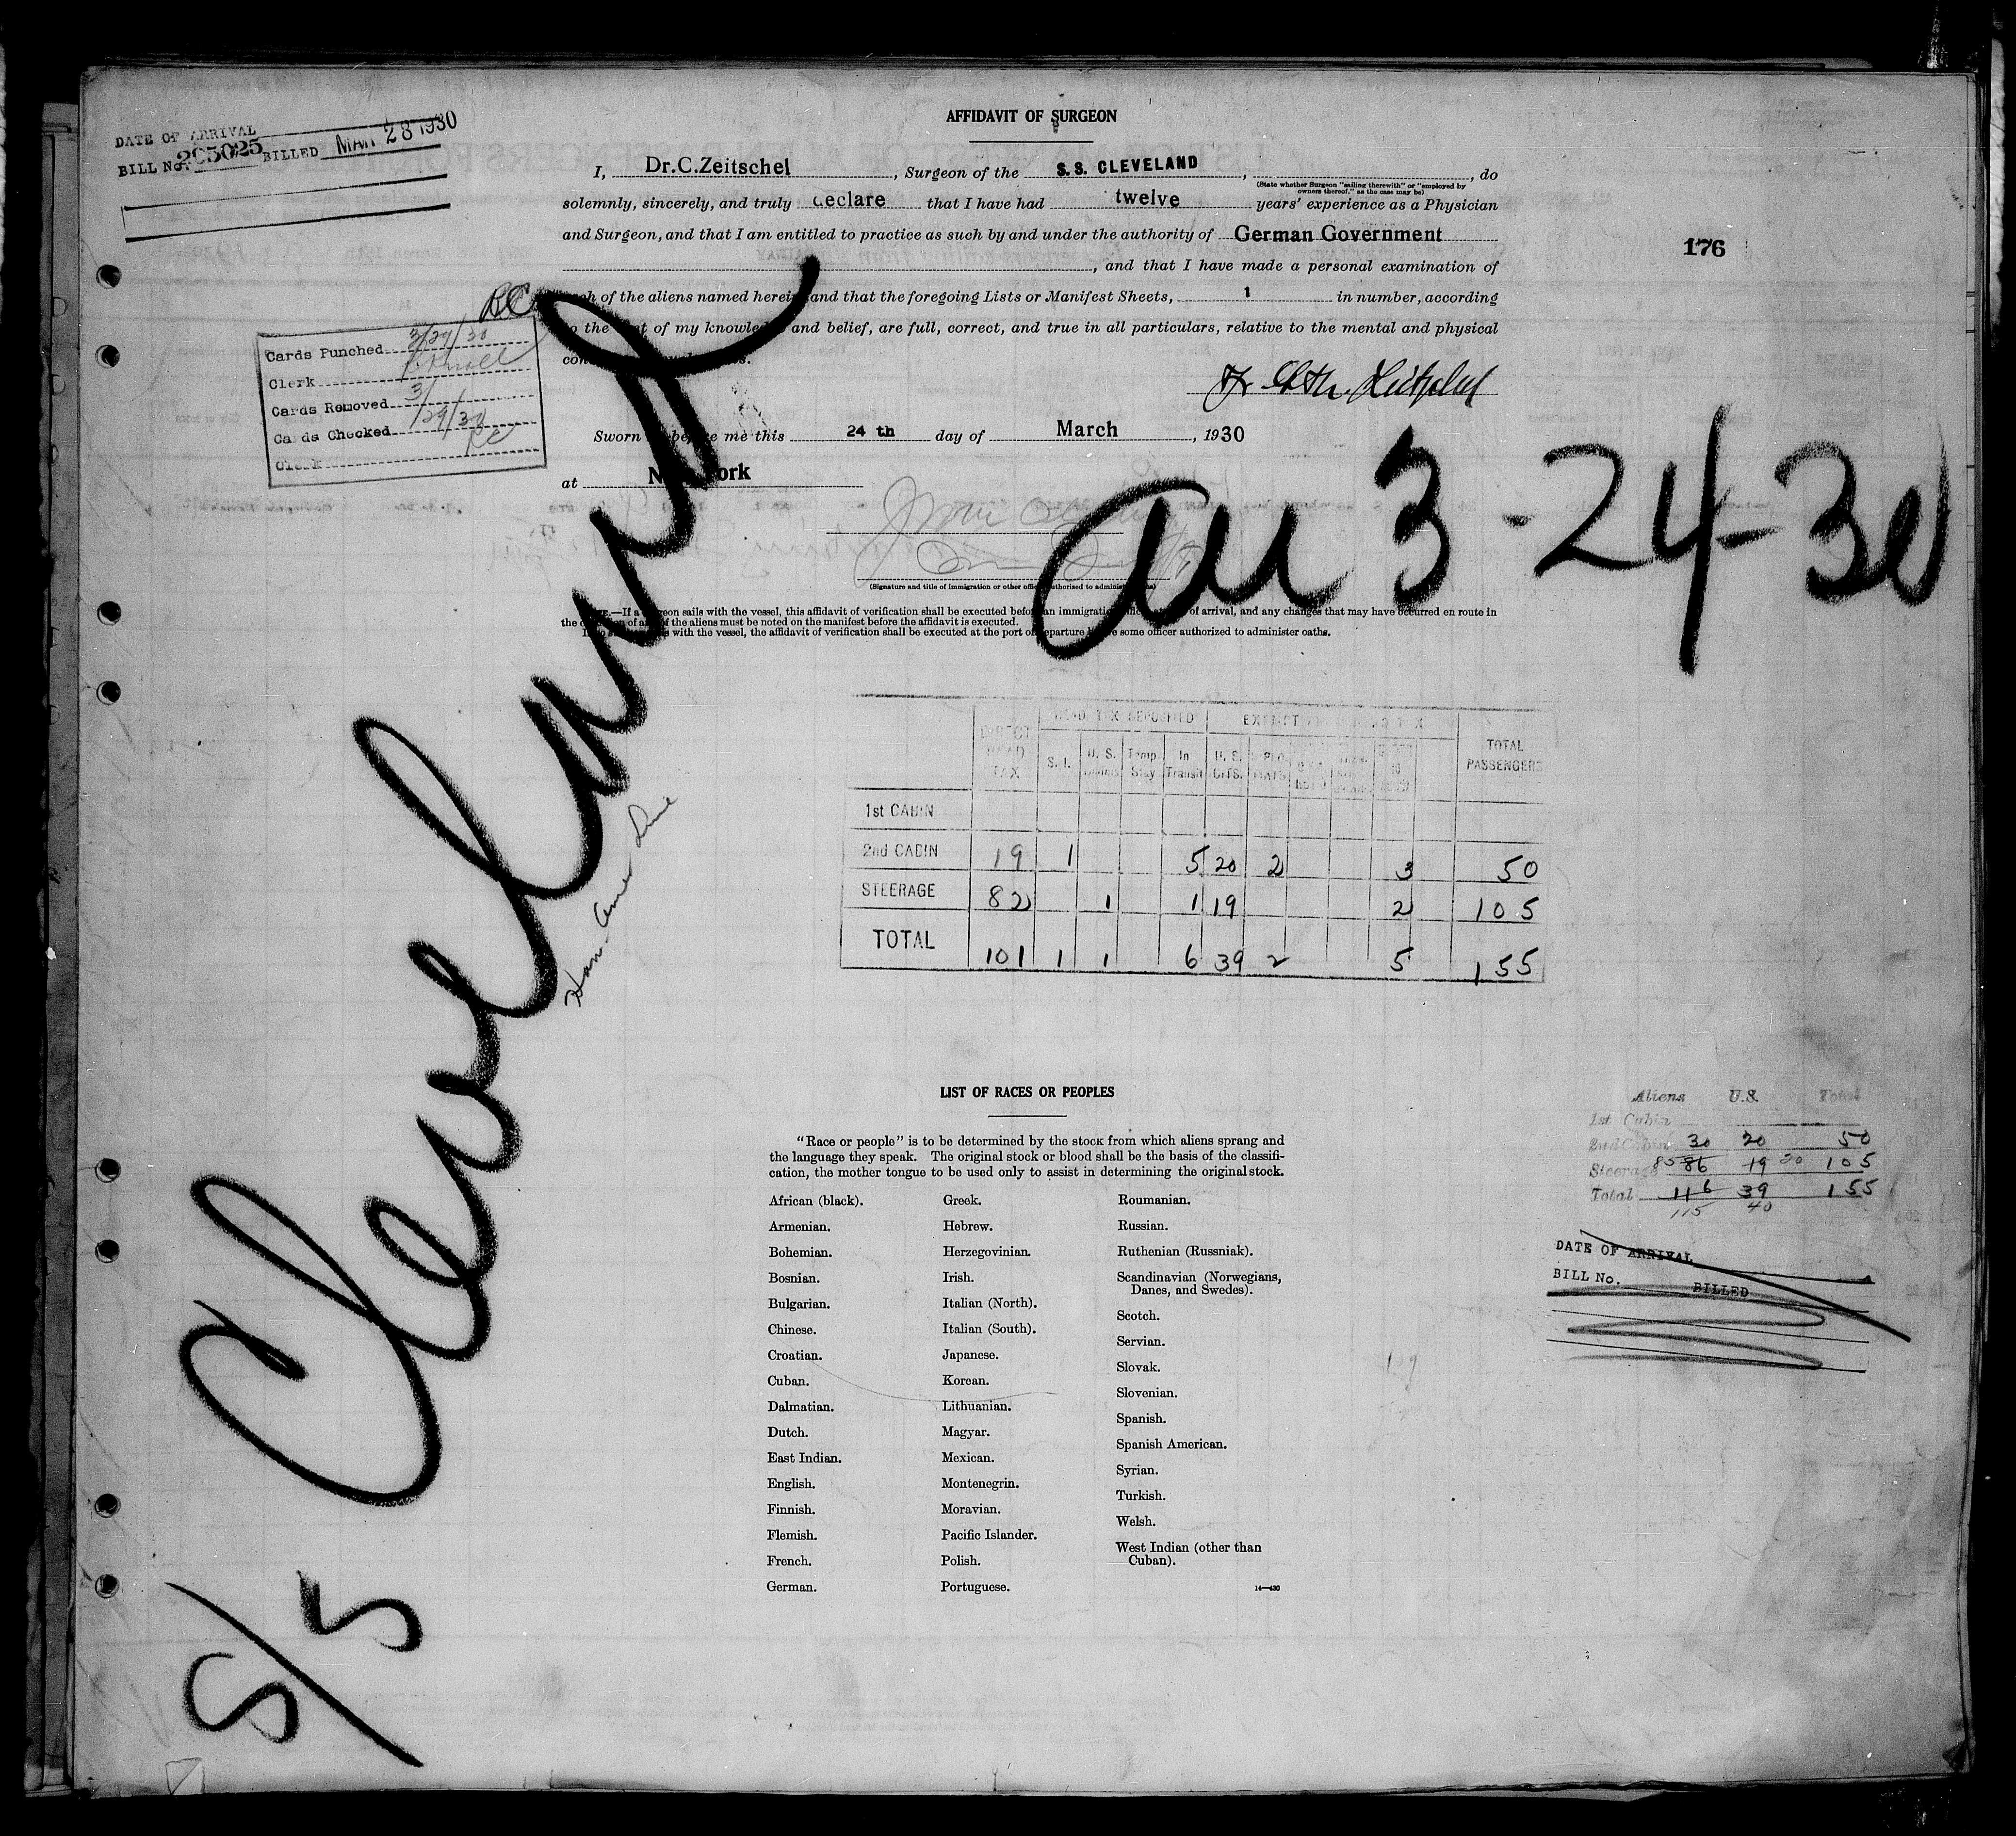 AFFIDAVIT OF SURGEON
DATE OF ARRIVAL
BILL No. 205025 BILLED MAR 28 1930
I, Dr.C.Zeitschel, Surgeon of the S. S. CLEVELAND, , do
(State whether Surgeon "sailing therewith" or "employed by
owners thereof," as the case may be)
solemnly, sincerely, and truly declare that I have had twelve years' experience as a Physician
and Surgeon, and that I am entitled to practice as such by and under the authority of German Government
176
, and that I have made a personal examination of
of the aliens named herein and that the foregoing Lists or Manifest Sheets, 1 in number, according
the of my and belief, are full, correct, and true in all particulars, relative to the mental and physical
RC
Cards Punched 3/29/30
Clerk
Cards Removed 3/
Cards Checked /29/30
Clerk RC
Sworn me this 24 th day of March, 1930
at New York
arr 3-24-30
(Signature and title of immigration or other officer authorised to administer oaths)
—If a surgeon sails with the vessel, this affidavit of verification shall be executed before an immigration of arrival, and any changes that may have occurred en route in
the of any of the aliens must be noted on the manifest before the affidavit is executed.
with the vessel, the affidavit of verification shall be executed at the port of departure before some officer authorized to administer oaths.
S/S Cleveland
Ham-Amer Line
DIRECT HEAD TAX HEAD TAX DEPOSITED EXEMPT HEAD TAX TOTAL PASSENGERS
S.I. U. S. Temp. Stay In Transit U. S. CITS.
1st CABIN
2nd CABIN 19 1 5 20 2 3 50
STEERAGE 82 1 1 19 2 105
TOTAL 101 1 1 6 39 2 5 155
LIST OF RACES OR PEOPLES
"Race or people" is to be determined by the stock from which aliens sprang and
the language they speak. The original stock or blood shall be the basis of the classifi-
cation, the mother tongue to be used only to assist in determining the original stock.
African (black).
Armenian.
Bohemian.
Bosnian.
Bulgarian.
Chinese.
Croatian.
Cuban.
Dalmatian.
Dutch.
East Indian.
English.
Finnish.
Flemish.
French.
German.
Greek.
Hebrew.
Herzegovinian.
Irish.
Italian (North).
Italian (South).
Japanese.
Korean.
Lithuanian.
Magyar.
Mexican.
Montenegrin.
Moravian.
Pacific Islander.
Polish.
Portuguese.
Roumanian.
Russian.
Ruthenian (Russniak).
Scandinavian (Norwegians,
Danes, and Swedes).
Scotch.
Servian.
Slovak.
Slovenian.
Spanish.
Spanish American.
Syrian.
Turkish.
Welsh.
West Indian (other than
Cuban).
14—430
Aliens U.S. Total
1st Cabin
2nd Cabin 30 20 50
Steerage 85 86 19 20 105
Total 116 39 155
115 40
DATE OF ARRIVAL
BILL No. BILLED